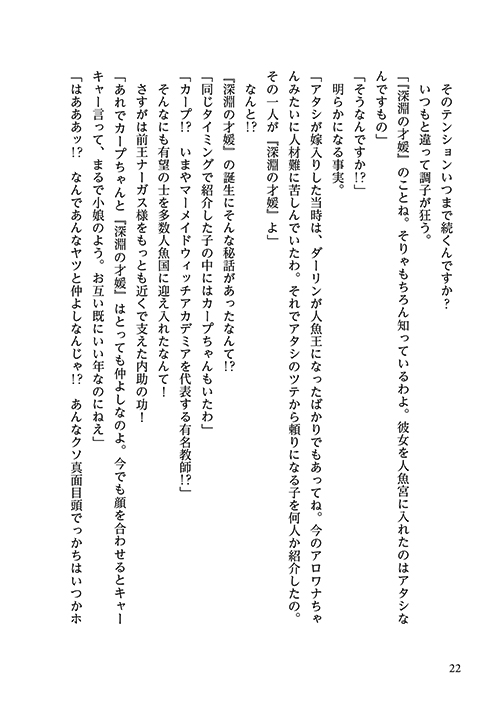 そのテンションいつまで続くんですか？
いつもと違って調子が狂う。
「『深淵の才媛』のことね。そりゃもちろん知っているわよ。彼女を人魚宮に入れたのはアタシな
んですもの」
「そうなんですか!?」
明らかになる事実。
「アタシが嫁入りした当時は、ダーリンが人魚王になったばかりでもあってね。今のアロワナちゃ
んみたいに人材難に苦しんでいたわ。それでアタシのツテから頼りになる子を何人か紹介したの。
その一人が『深淵の才媛』よ」
なんと!?
『深淵の才媛』の誕生にそんな秘話があったなんて!?
「同じタイミングで紹介した子の中にはカープちゃんもいたわ」
「カープ!?　いまやマーメイドウィッチアカデミアを代表する有名教師!?」
そんなにも有望の士を多数人魚国に迎え入れたなんて！
さすがは前王ナーガス様をもっとも近くで支えた内助の功！
「あれでカープちゃんと『深淵の才媛』はとっても仲よしなのよ。今でも顔を合わせるとキャー
キャー言って、まるで小娘のよう。お互い既にいい年なのにねえ」
「はあああッ!?　なんであんなヤツと仲よしなんじゃ!?　あんなクソ真面目頭でっかちはいつかホ
22